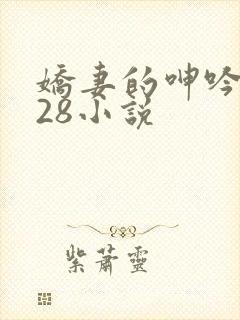 嬌妻的呻吟
28小說
紫蕭靈